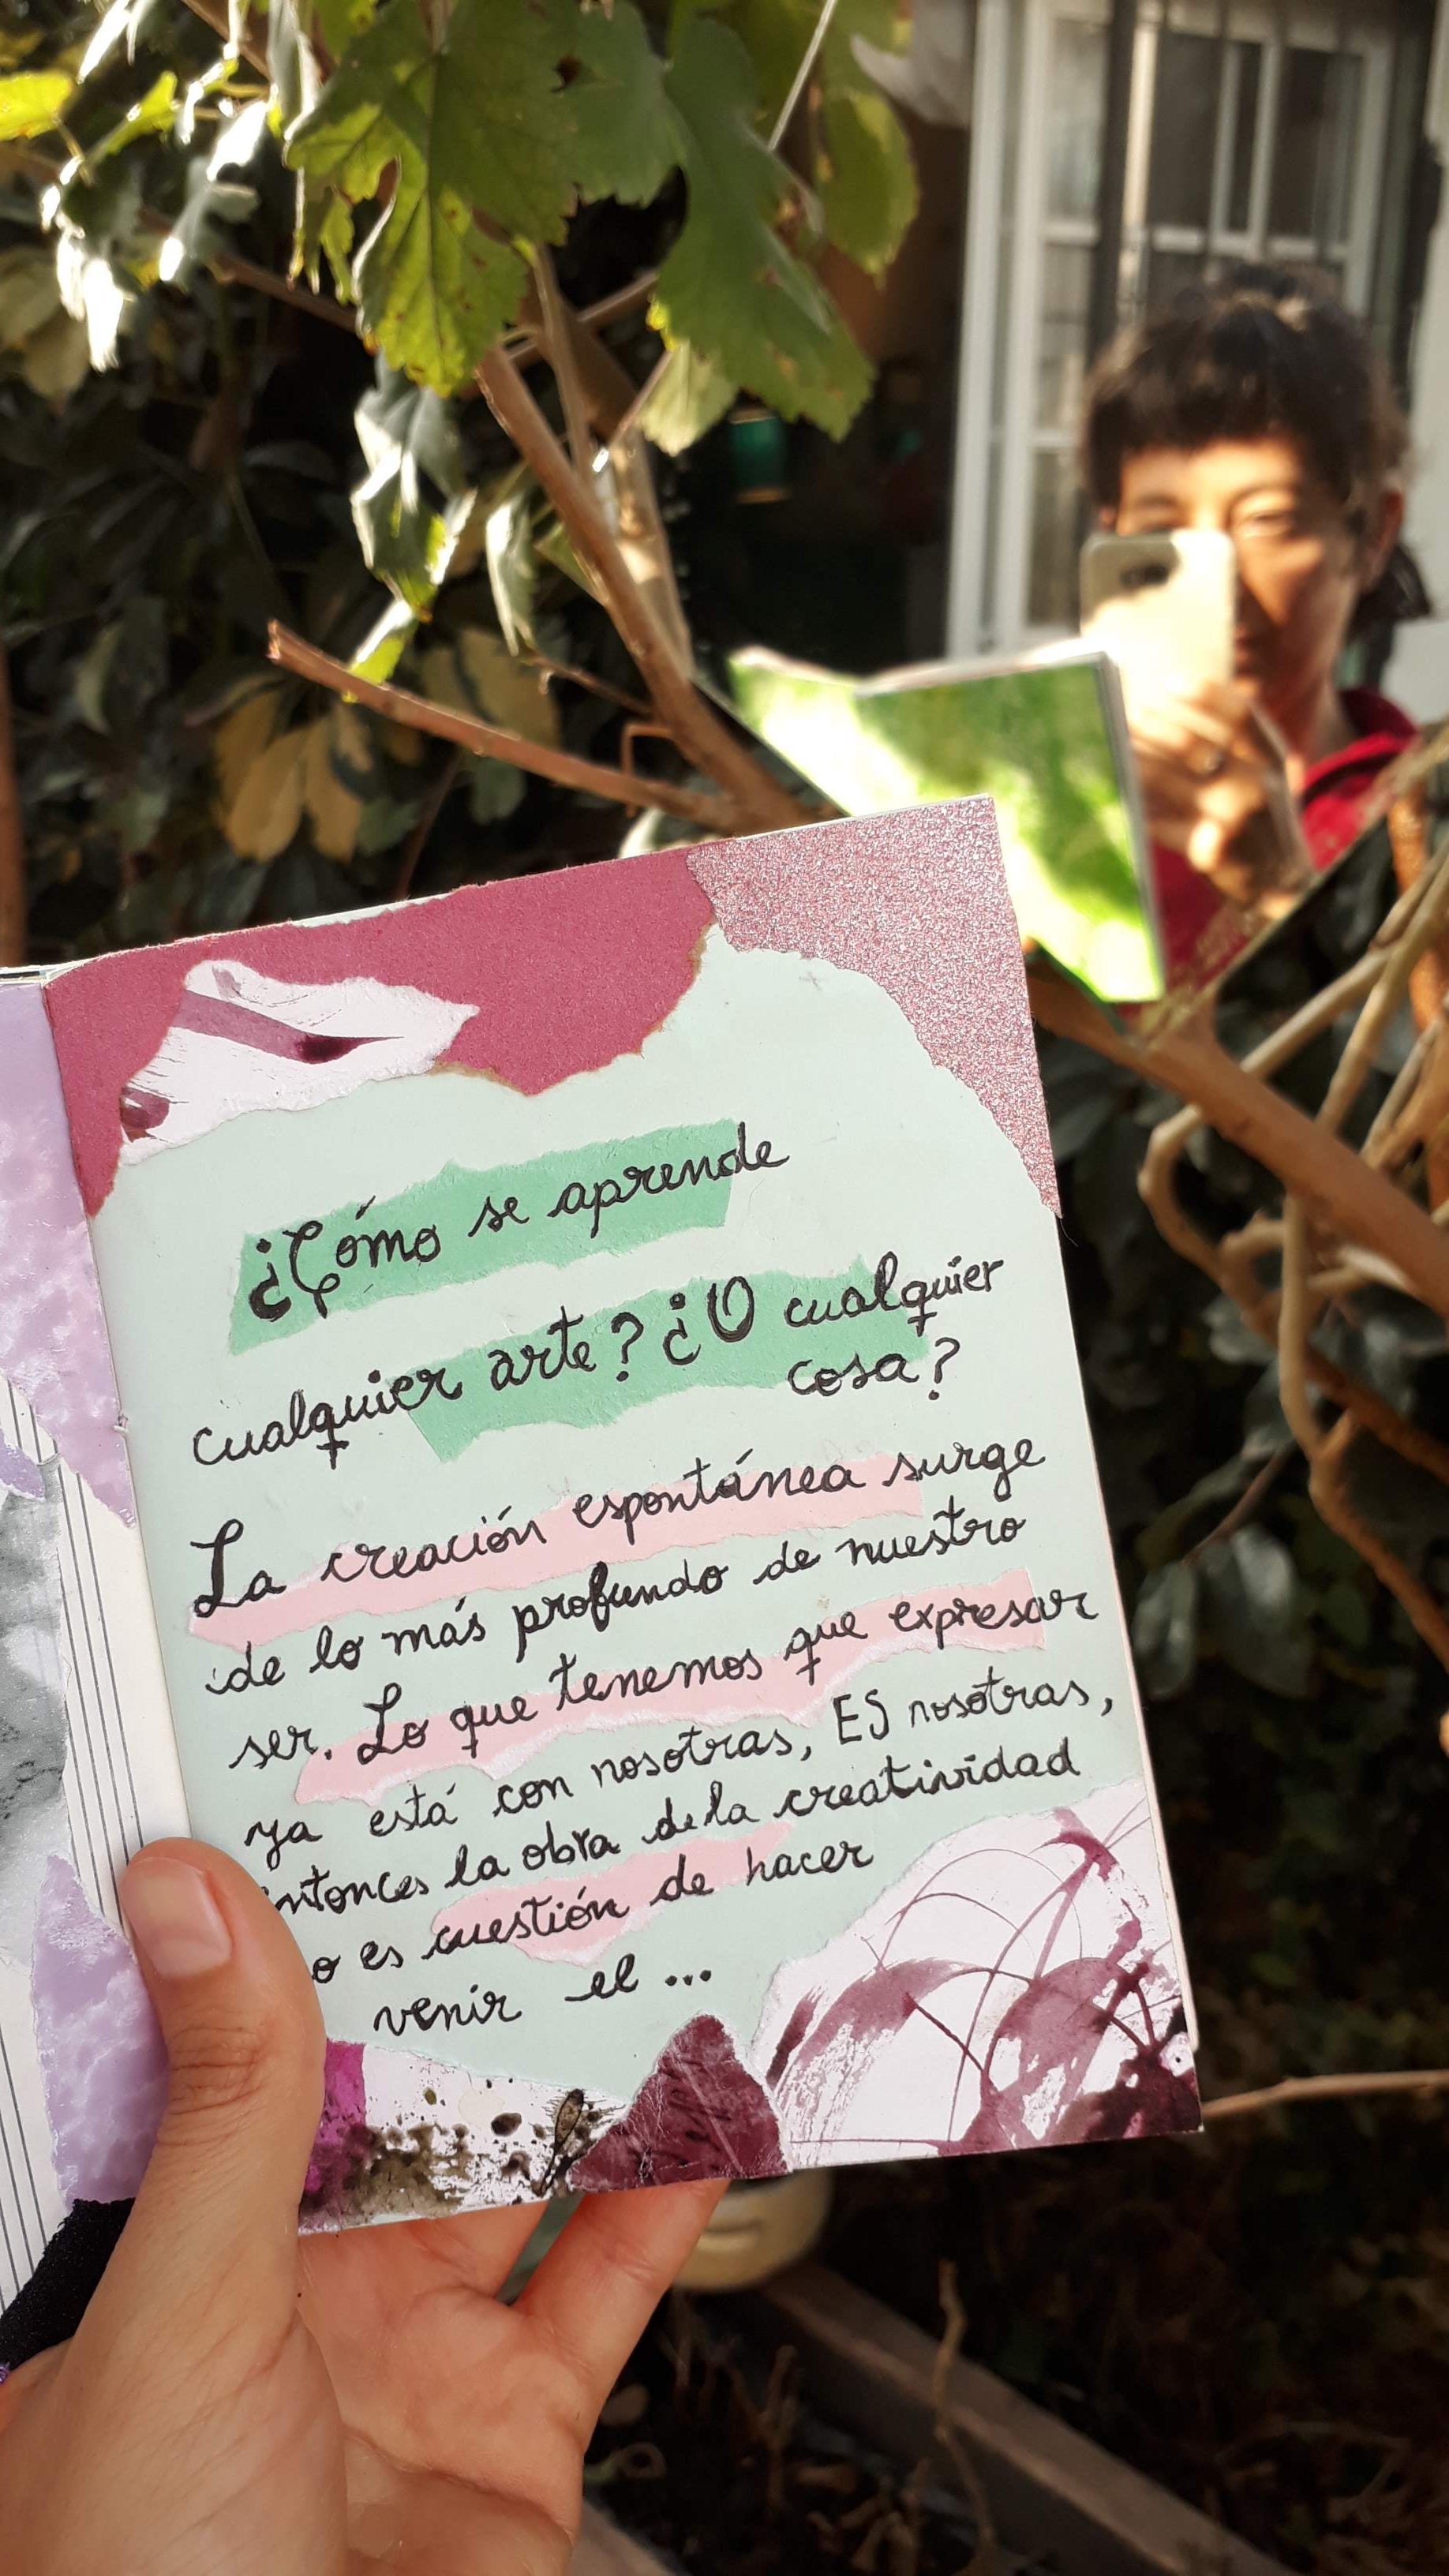 ¿Cómo se aprende
cualquier arte? ¿O cualquier
cosa?
La creación espontánea surge
de lo más profundo de nuestro
ser. Lo que tenemos que expresar
ya está con nosotras, ES nosotras,
entonces la obra de la creatividad
no es cuestión de hacer
venir el ...